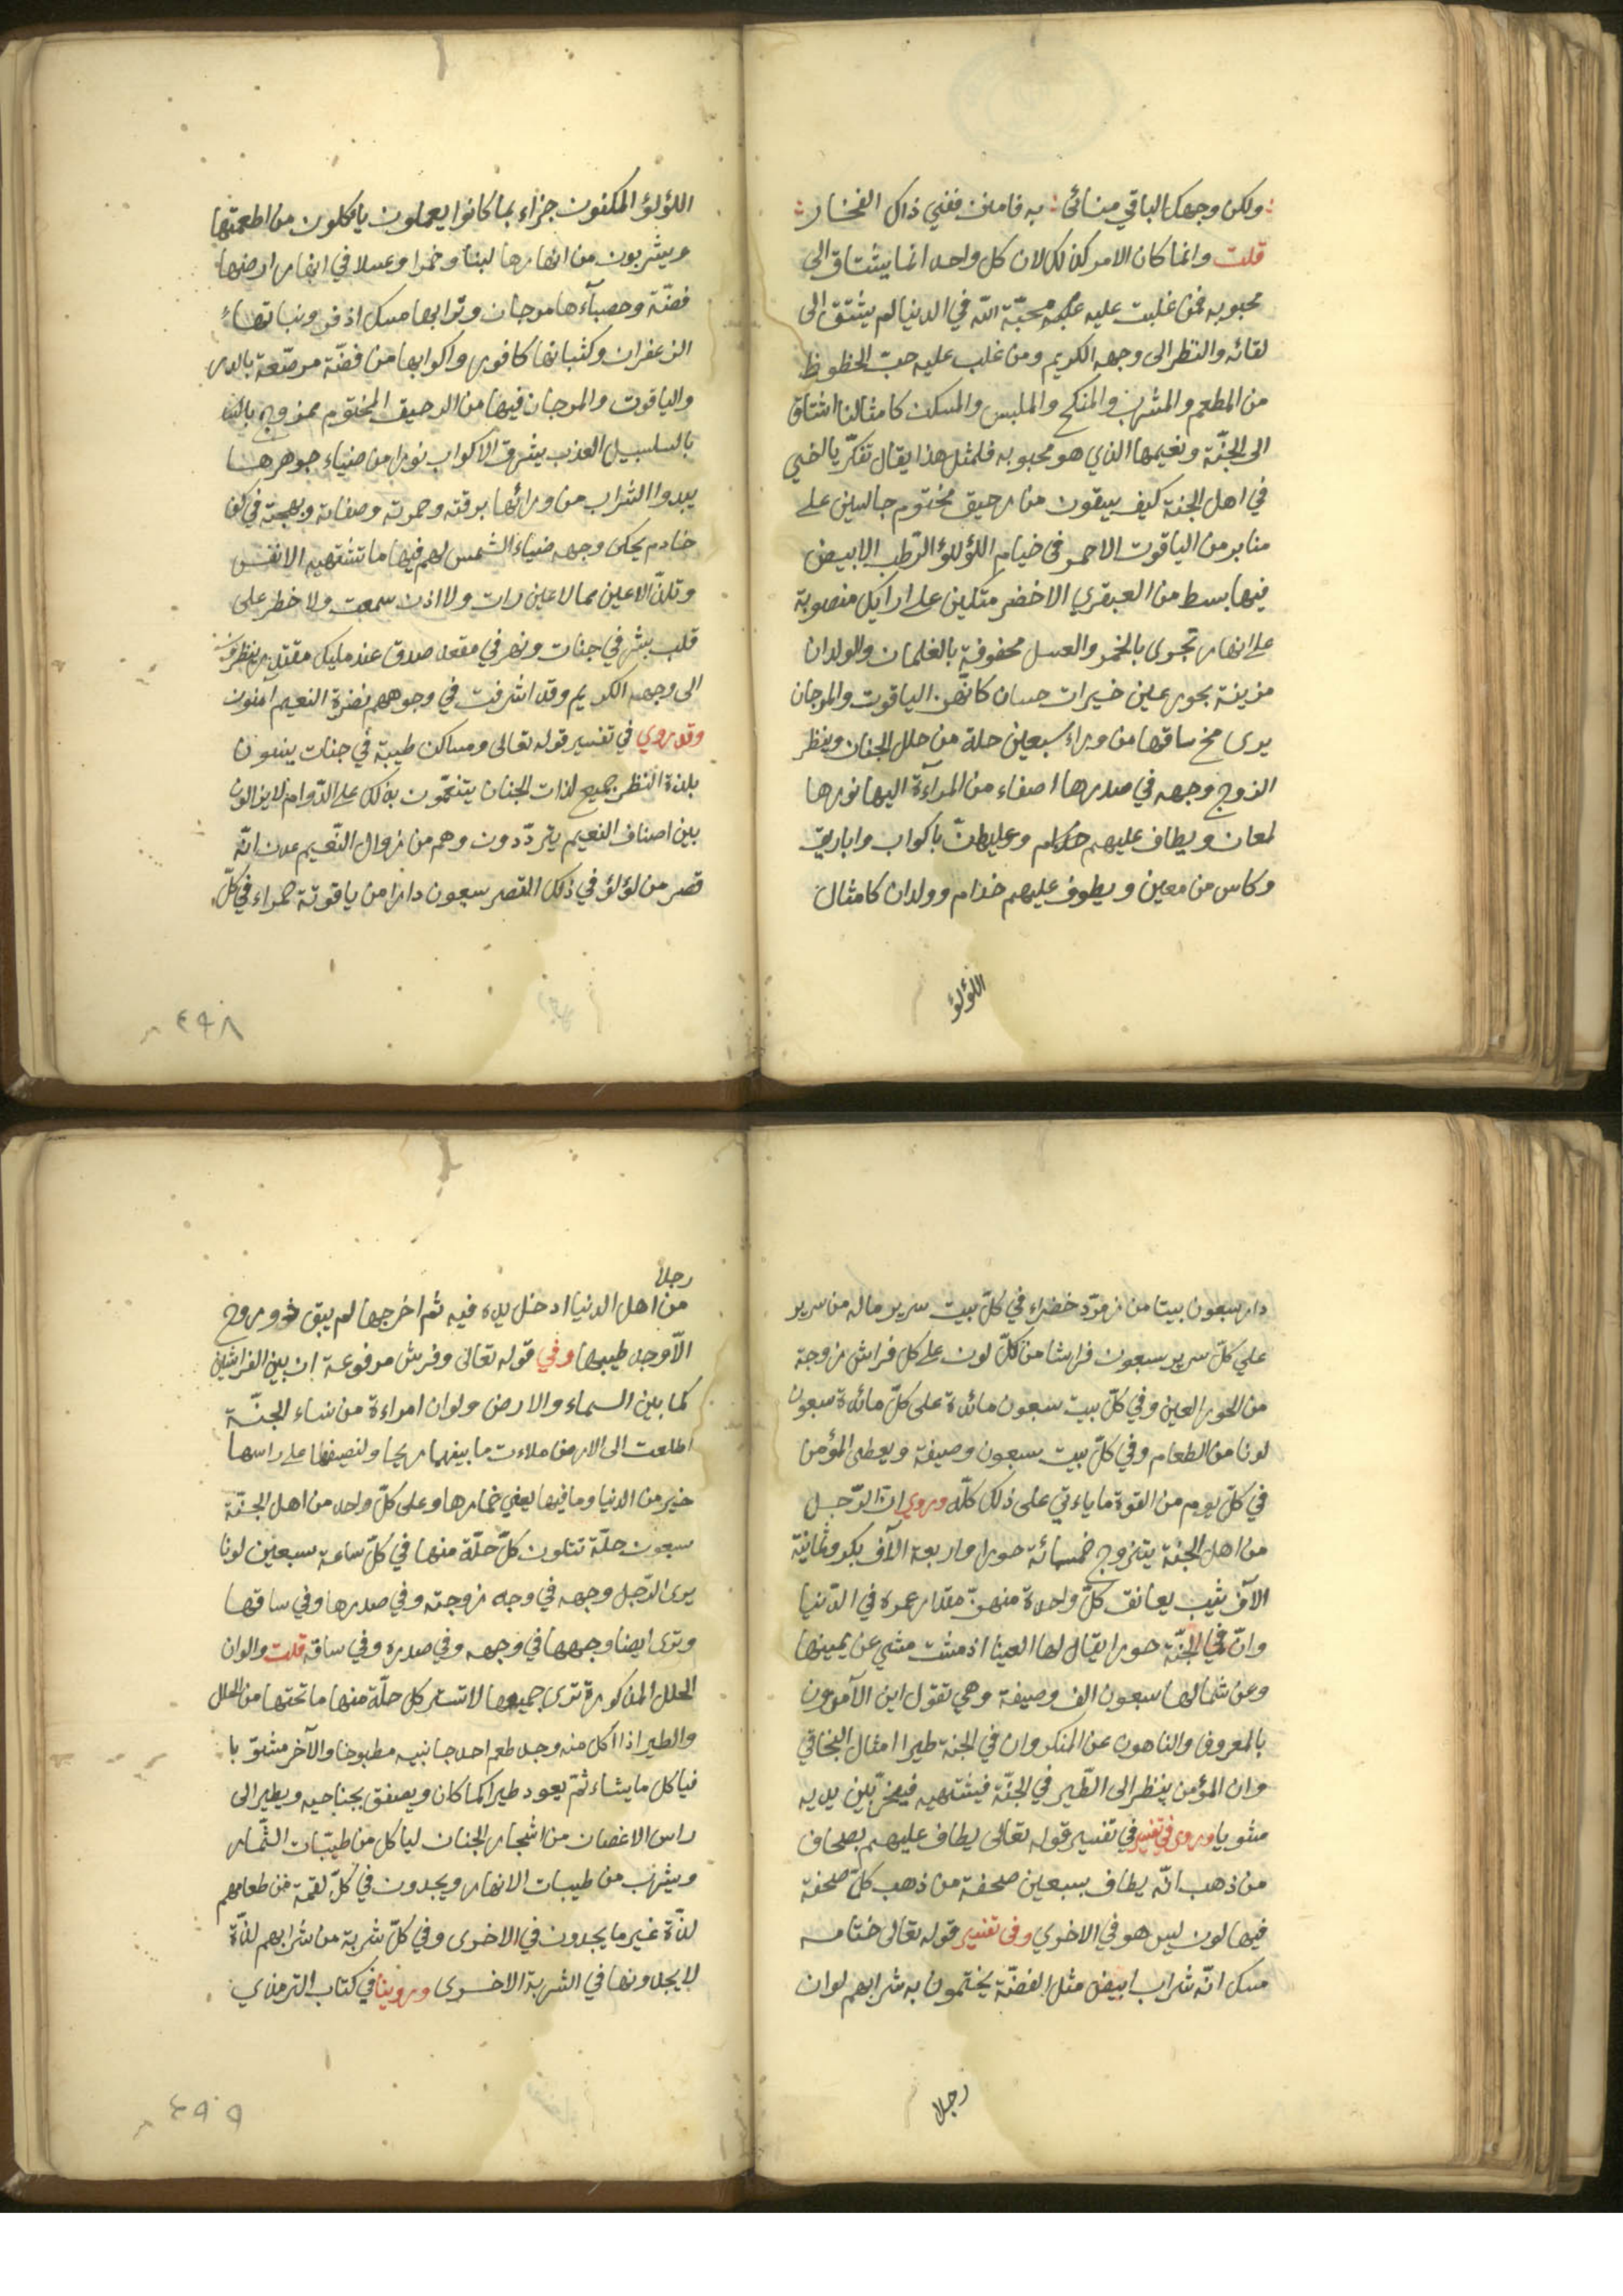 ولكن وجهك الباقي منائى به فامنن ففي ذاك الفخار
قلت وانما كان الامر كذلك لان كل واحد انما يشتاق الى
محبوبه فمن غلبت عليه محبّة الله في الدنيا لم يشتق الى
لقائه والنظر الى وجهه الكريم ومن غلب عليه حبّ الحظوظ
من المطعم والمشرب والمنكح والملبس والمسكن كامثالنا اشتاق
الى الجنّة ونعيمها الذي هو محبوبه فلمثل هذا يقال تفكّر يا اخي
في اهل الجنة كيف يسقون من رحيق مختوم جالسين على
منابر من الياقوت الاحمر في خيام اللؤلؤ الرّطب الابيض
فيها بسط من العبقري الاخضر متكئين على ارايك منصوبة
على انهار تجرى بالخمر والعسل محفوفة بالغلمان والولدان
مزينة بحور عين خيرات حسان كانّهن الياقوت والمرجان
يرى مخ ساقها من وراء سبعين حلة من حلل الجنان وينظر
الزوج وجهه في صدرها اصفاء من المراءة اليها نورها
لمعان ويطاف عليهم وعليهنّ باكواب واباريق
وكاس من معين ويطوف عليهم خدام وولدان كامثال
اللؤلؤ
اللؤلؤ المكنون جزاء بما كانوا يعملون ياكلون من اطعمتها
ويشربون من انهارها لبنا وخمرا وعسلا في انهار ارضها
فضّة وحصبآءها مرجان وترابها مسك اذفر ونباتهاء
الزعفران وكثبانها كافور واكوابها من فضّة مرصّعة بالدر
والياقوت والمرجان فيها من الرحيق المختوم ممزوج
بالسلسبيل العذب يشرق الاكواب نورا من ضياء جوهرها
يبدوا الشراب من ورائها برقته وحمرته وصفائه وبهجته في كف
خادم يحكى وجهه ضياء الشمس لهم فيها ما تشتهيه الانفس
وتلذّ الاعين مما لا عين رات ولا اذن سمعت ولا خطر على
قلب بشر في جنات ونهر في مقعد صدق عند مليك مقتدر ينظرون
الى وجهه الكريم وقد اشرفت في وجوههم نضرة النعيم امنون
وقد روي في تفسير قوله تعالى ومساكن طيبة في جنات
بلذة النظر جميع لذات الجنان يتنعّمون بذلك على الدّوام لا يزالون
بين اصناف النعيم يتردّدون وهم من زوال النّعيم عدن انّه
قصر من لؤلؤ في ذلك القصر سبعون دارا من ياقوتة حمراء في كلّ
٤٩٨
دار سبعون بيتا من زمرّد خضراء في كلّ بيت سرير ماله من سرير
على كلّ سرير سبعون فراشا من كلّ لون على كل فراش زوجة
من الحور العين وفي كلّ بيت سبعون مائدة على كلّ مائدة سبعون
لونا من الطعام وفي كلّ بيت سبعون وصيفة ويعطى المؤمن
في كلّ يوم من القوة ما ياءتي على ذلك كلّه وروي انّ الرّجل
من اهل الجنة يتزوج خمسمائة حورا واربعة الآف بكر وثمانية
الآف ثيب يعانق كلّ واحدة منهنّ مقدار عمره في الدّنيا
وانّ في الجنّة حورا يقال لها العينا اذ مشت مشي عن يمينها
وعن شمالها سبعون الف وصيفة وهي تقول اين الآمرون
بالمعروف والناهون عن المنكر وان في الجنة طيرا امثال البخاتي
وان المؤمن ينظر الى الطّير في الجنّة فيشتهيه فيخرّ بين يديه
مشويا وروى في تفسير في تفسير قوله تعالى يطاف عليهم بصحاف
من ذهب انّه يطاف بسبعين صحفة من ذهب كلّ صحفة
فيها لون ليس هو في الاخرى وفى تفسير قوله تعالى ختامه
مسك انّه شراب ابيض مثل الفضّة يختمون به شرابهم لو ان
رجلا
رجلا
من اهل الدنيا ادخل يده فيه ثم اخرجها لم يبق ذو روح
الّا وجد طيبها وفي قوله تعالى وفرش مرفوعة ان بين الفراشين
كما بين السماء والارض ولو ان امراءة من نساء الجنّة
اطلعت الى الارض ملاءت ما بينهما ريحا ولنصيفها على راسها
خير من الدنيا وما فيها يعني خمارها وعلى كلّ واحد من اهل الجنّة
سبعون حلّة تتلون كلّ حلّة منها في كلّ ساعة سبعين لونا
يرى الرّجل وجهه في وجه زوجته وفي صدرها وفي ساقها
وترى ايضا وجهها في وجهه وفي صدره وفي ساقه قلت والوان
الحلل المذكورة ترى جميعها لا تستر كل حلّة منها ما تحتها من الحلل
والطير اذا اكل منه وجد طعم احد جانبيه مطبوخا والآخر مشويّا
فياكل ما يشاء ثمّ يعود طيرا كما كان ويصفق بجناحيه ويطير الى
راس الاغصان من اشجار الجنان لياكل من طيّبات الثّمار
ويشرب من طيبات الانهار ويجدون في كلّ لقمة من طعامهم
لذّة غير ما يجدون في الاخرى وفي كلّ شربة من شرابهم لذّة
لا يجدونها في الشربة الاخرى وروينا في كتاب الترمذي
٤٩٩